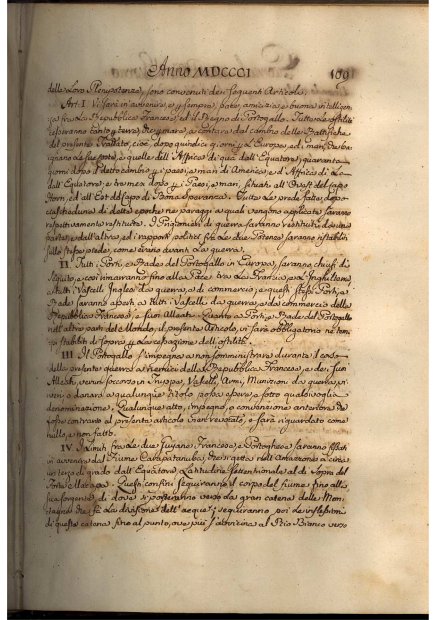 Anno MDCCCI
109
delle Loro Plenipotenze, sono convenuti de' seguenti Articoli.
Art. I. Vi sarà in avvenire, e p sempre, pace, amicizia, e buona intelligen-
za fra la Repubblica Francese, ed il Regno di Portogallo. Tutte le ostilità
cesseranno tanto p terra, che p mare, a contare dal cambio delle Ratifiche
del presente Trattato, cioè, dopo quindici giorni p l'Europa, ed i mari, che ba-
gnano le sue coste, e quelle dell'Affrica di quà dall'Equatore; quaranta
giorni dopo il detto cambio p i paesi, e mari di America, ed Affrica di là
dall'Equatore; e tre mesi dopo p i Paesi, e mari situati all'Ovest del Capo
Horn, ed all'Est del Capo di Bona Speranza. Tutte le prede fatte, dopo
la scadenza di dette epoche ne' paraggi a' quali vengono applicate saranno
respettivamente restituite. I Prigionieri di guerra saranno restituiti da una
parte, e dall'altra, ed i rapporti politici fra le due Potenze saranno ristabiliti
sullo stesso piede, come erano avanti la guerra.
II. Tutti i Porti, e Rade del Portogallo in Europa, saranno chiusi di
seguito, e così rimarranno fino alla Pace tra la Francia, e l'Inghilterra
a tutti i Vascelli Inglesi da guerra, e di commercio; e questi stessi Porti, e
Rade saranno aperti a tutti i Vascelli da guerra, e da commercio della
Repubblica Francese, e suoi Alleati. Quanto a' Porti, e Rade del Portogallo
nell'altre parti del Mondo, il presente Articolo, vi sarà obbligatorio ne' tem-
pi stabiliti di sopra p la cessazione dell'ostilità.
III. Il Portogallo s'impegna a non somministrare durante il corso
della presente guerra a' nemici della Repubblica Francese, e de' suoi
Alleati, verun soccorso in Truppe, Vascelli, Armi, Munizioni da guerra, vi-
veri, o danari a qualunque titolo possa essere, e sotto qualsivoglia
denominazione. Qualunque atto, impegno, o convenzione anteriore che
fosse contrario al presente articolo è rivocato, e sarà riguardato come
nullo, e non fatto.
IV. I Limiti fra le due Gujane Francese, e Portoghese saranno fissati
in avvenire dal Fiume Carapatanuba, che si getta nell'Amazzone a circa
un terzo di grado dall'Equatore Latitudine Settentrionale al di sopra del
Forte Macapa. Questi confini seguiranno il corso del fiume fino alla
sua sorgente, di dove si porteranno verso la gran catena delle Mon-
tagne che fà la divisione dell'acque; seguiranno poi le inflessioni
di questa catena fino al punto, ove più s'avvicina al Rio Bianco verso